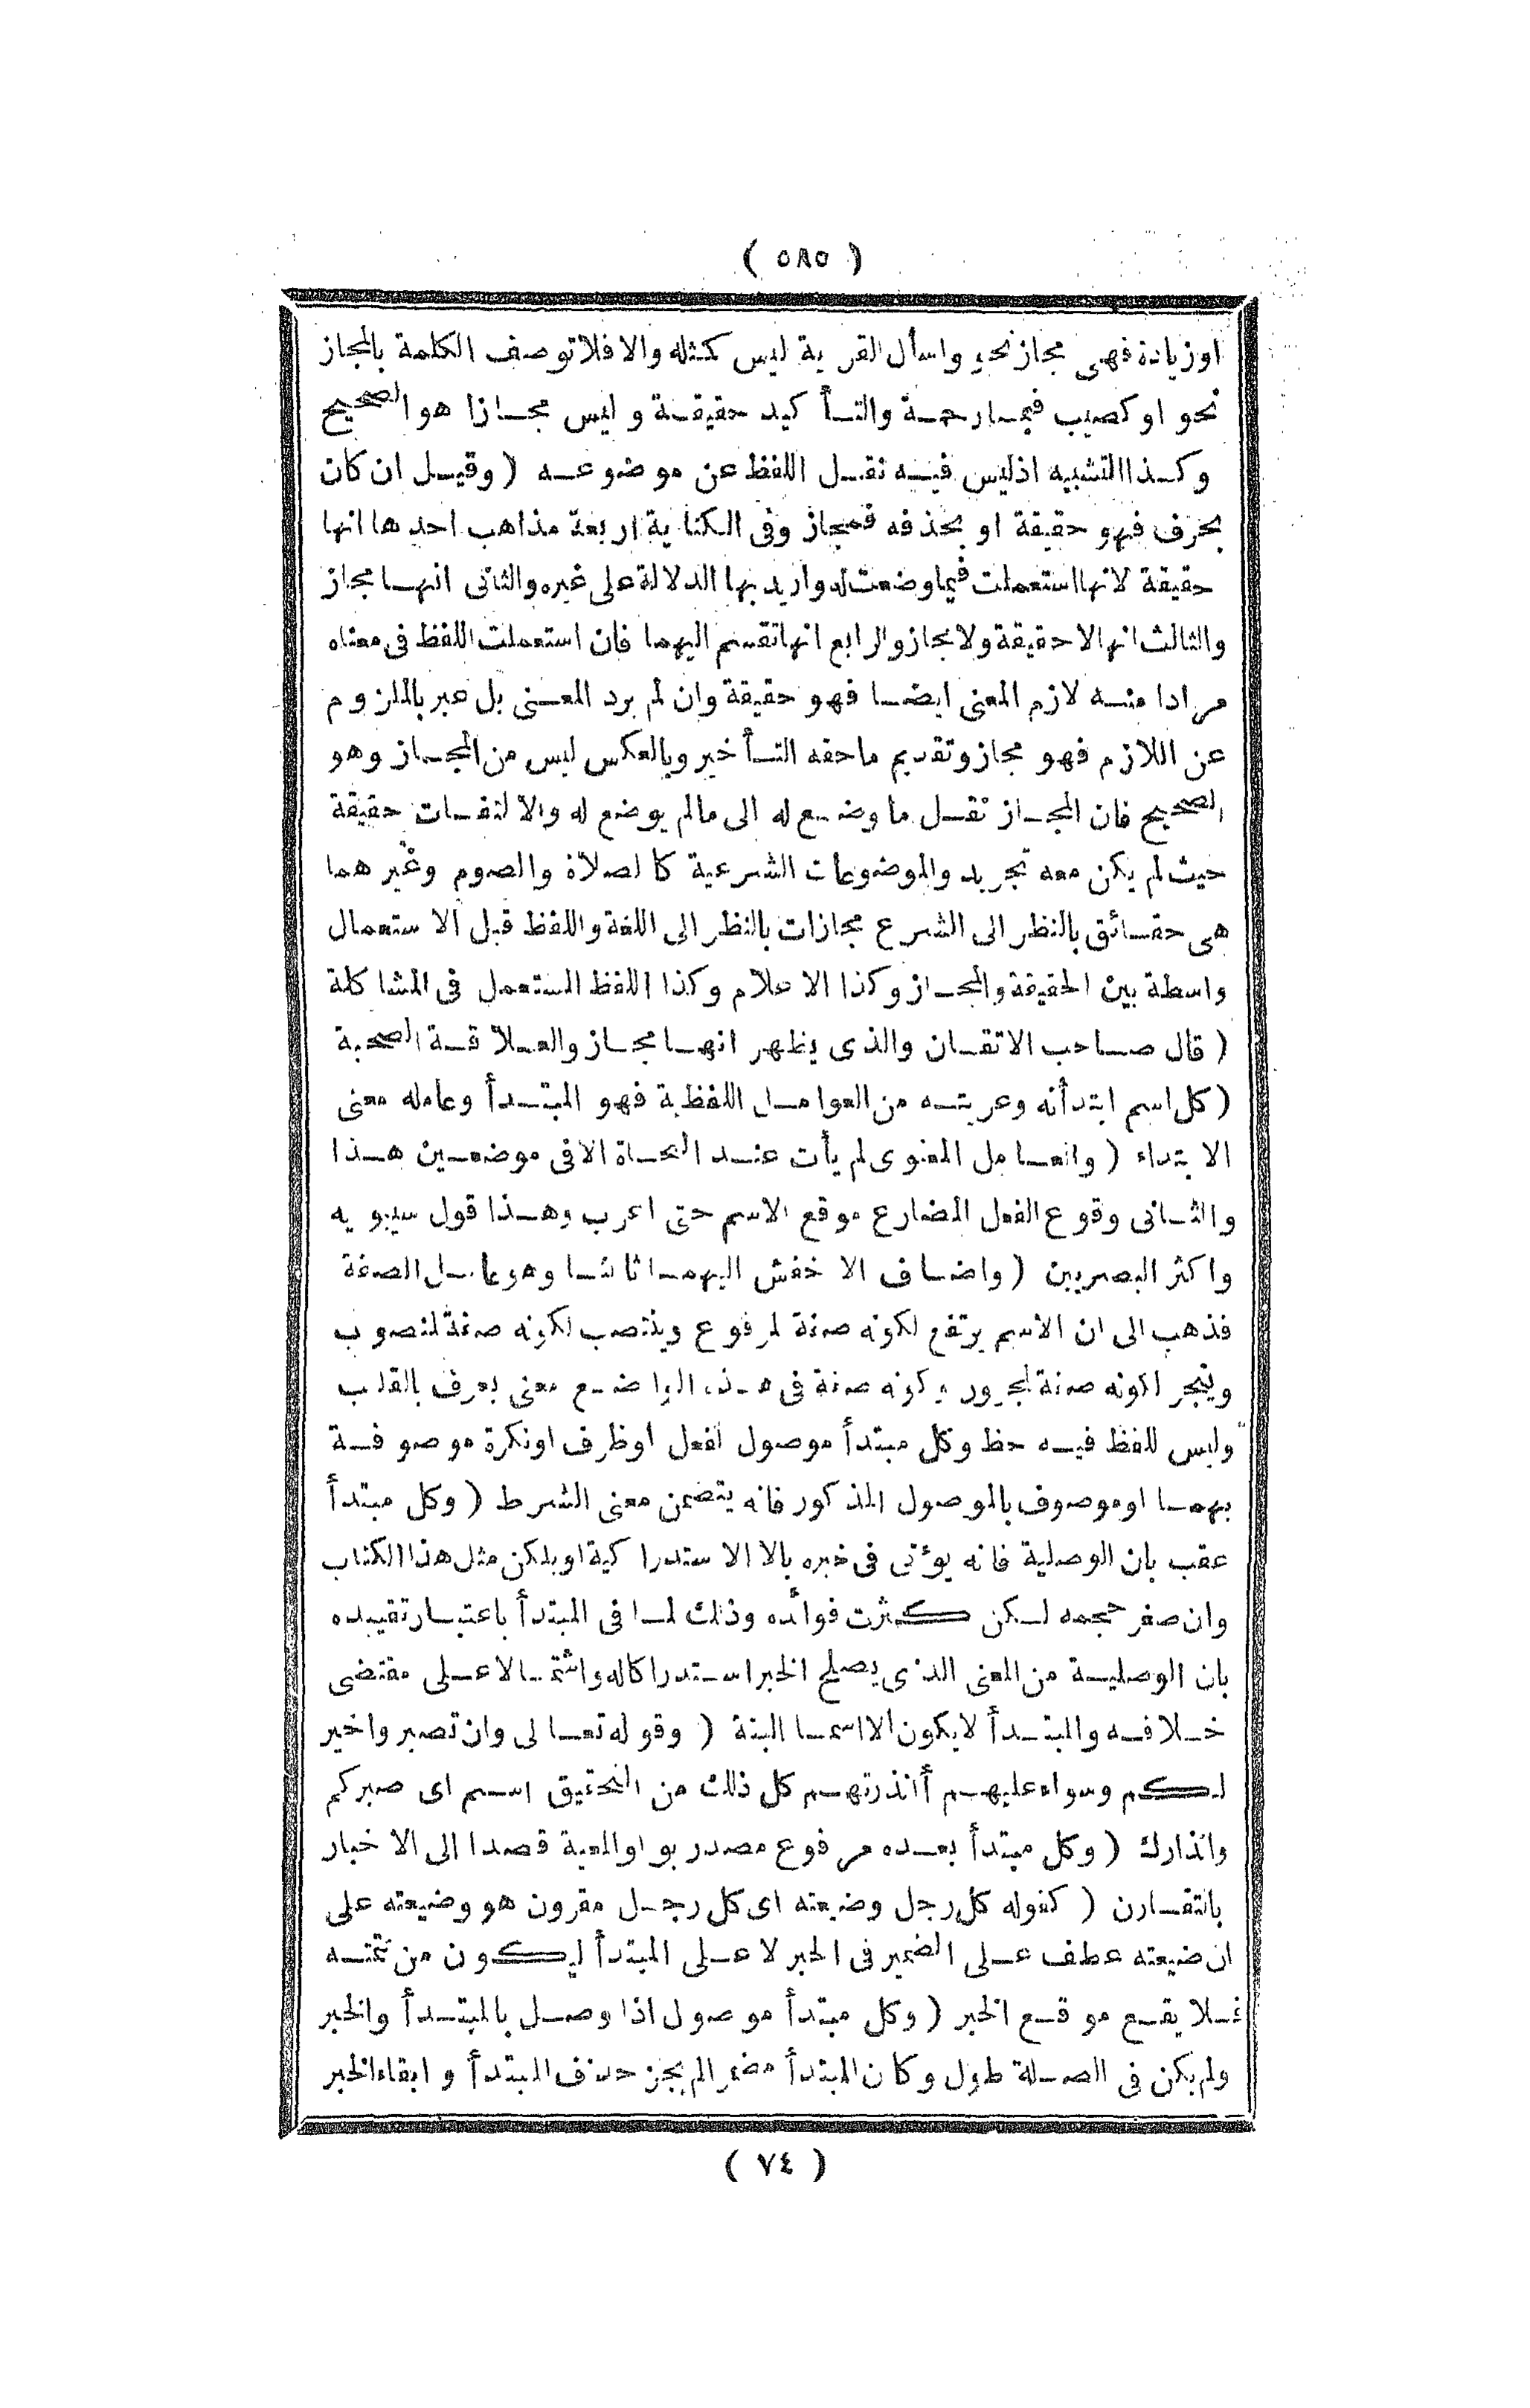 ( ٥٨٥ )
او زيادة فهى مجاز نحو واسأل القرية ليس كمثله والا فلا توصف الكلمة بالمجاز
نحو او كصيب فبما رحمة والتأكيد حقيقة وليس مجازا هو الصحيح
وكذا التشبيه اذ ليس فيه نقل اللفظ عن موضوعه ( وقيل ان كان
بحرف فهو حقيقة او بحذفه فمجاز وفى الكناية اربعة مذاهب احدها انها
حقيقة لانها استعملت فيما وضعت له واريد بها الدلالة على غيره والثانى انها مجاز
والثالث انها لا حقيقة ولا مجاز والرابع انها تقسم اليهما فان استعملت اللفظ فى معناه
مرادا منه لازم المعنى ايضا فهو حقيقة وان لم يرد المعنى بل عبر بالملزوم
عن اللازم فهو مجاز وتقديم ما حقه التأخير وبالعكس ليس من المجاز وهو
الصحيح فان المجاز نقل ما وضع له الى ما لم يوضع له والالتفات حقيقة
حيث لم يكن معه تجريد والموضوعات الشرعية كالصلاة والصوم وغيرهما
هى حقائق بالنظر الى الشرع مجازات بالنظر الى اللغة واللفظ قبل الاستعمال
واسطة بين الحقيقة والمجاز وكذا الاعلام وكذا اللفظ المستعمل فى المشاكلة
( قال صاحب الاتقان والذى يظهر انها مجاز والعلاقة الصحبة
( كل اسم ابتدأته وعريته من العوامل اللفظية فهو المبتدأ وعامله معنى
الابتداء ( والعامل المعنوى لم يأت عند النحاة الا فى موضعين هذا
والثانى وقوع الفعل المضارع موقع الاسم حتى اعرب وهذا قول سيبويه
واكثر البصريين ( واضاف الاخفش اليهما ثالثا وهو عامل الصفة
فذهب الى ان الاسم يرتفع لكونه صفة لمرفوع وينتصب لكونه صفة لمنصوب
وينجر لكونه صفة لمجرور وكونه صفة فى هذه المواضع معنى يعرف بالقلب
وليس للفظ فيه حظ وكل مبتدأ موصول لفعل او ظرف او نكرة موصوفة
بهما او موصوف بالموصول المذكور فانه يتضمن معنى الشرط ( وكل مبتدأ
عقب بان الوصلية فانه يؤتى فى خبره بالا الاستدراكية او بلكن مثل هذا الكتاب
وان صغر حجمه لكن كثرت فوائده وذلك لما فى المبتدأ باعتبار تقييده
بان الوصلية من المعنى الذى يصلح الخبر استدراكا له واشتمالا على مقتضى
خلافه والمبتدأ لا يكون الا اسما البتة ( وقوله تعالى وان تصبروا خير
لكم وسواء عليهم أأنذرتهم كل ذلك من التحقيق اسم اى صبركم
وانذارك ( وكل مبتدأ بعده مرفوع مصدر بواو المعية قصدا الى الاخبار
بالتقارن ( كقوله كل رجل وضيعته اى كل رجل مقرون هو وضيعته على
ان ضيعته عطف على الضمير فى الخبر لا على المبتدأ ليكون من تتمته
فلا يقع موقع الخبر ( وكل مبتدأ موصول اذا وصل بالمبتدأ والخبر
ولم يكن فى الصلة طول وكان المبتدأ مضمرا لم يجز حذف المبتدأ وابقاء الخبر
( ٧٤ )